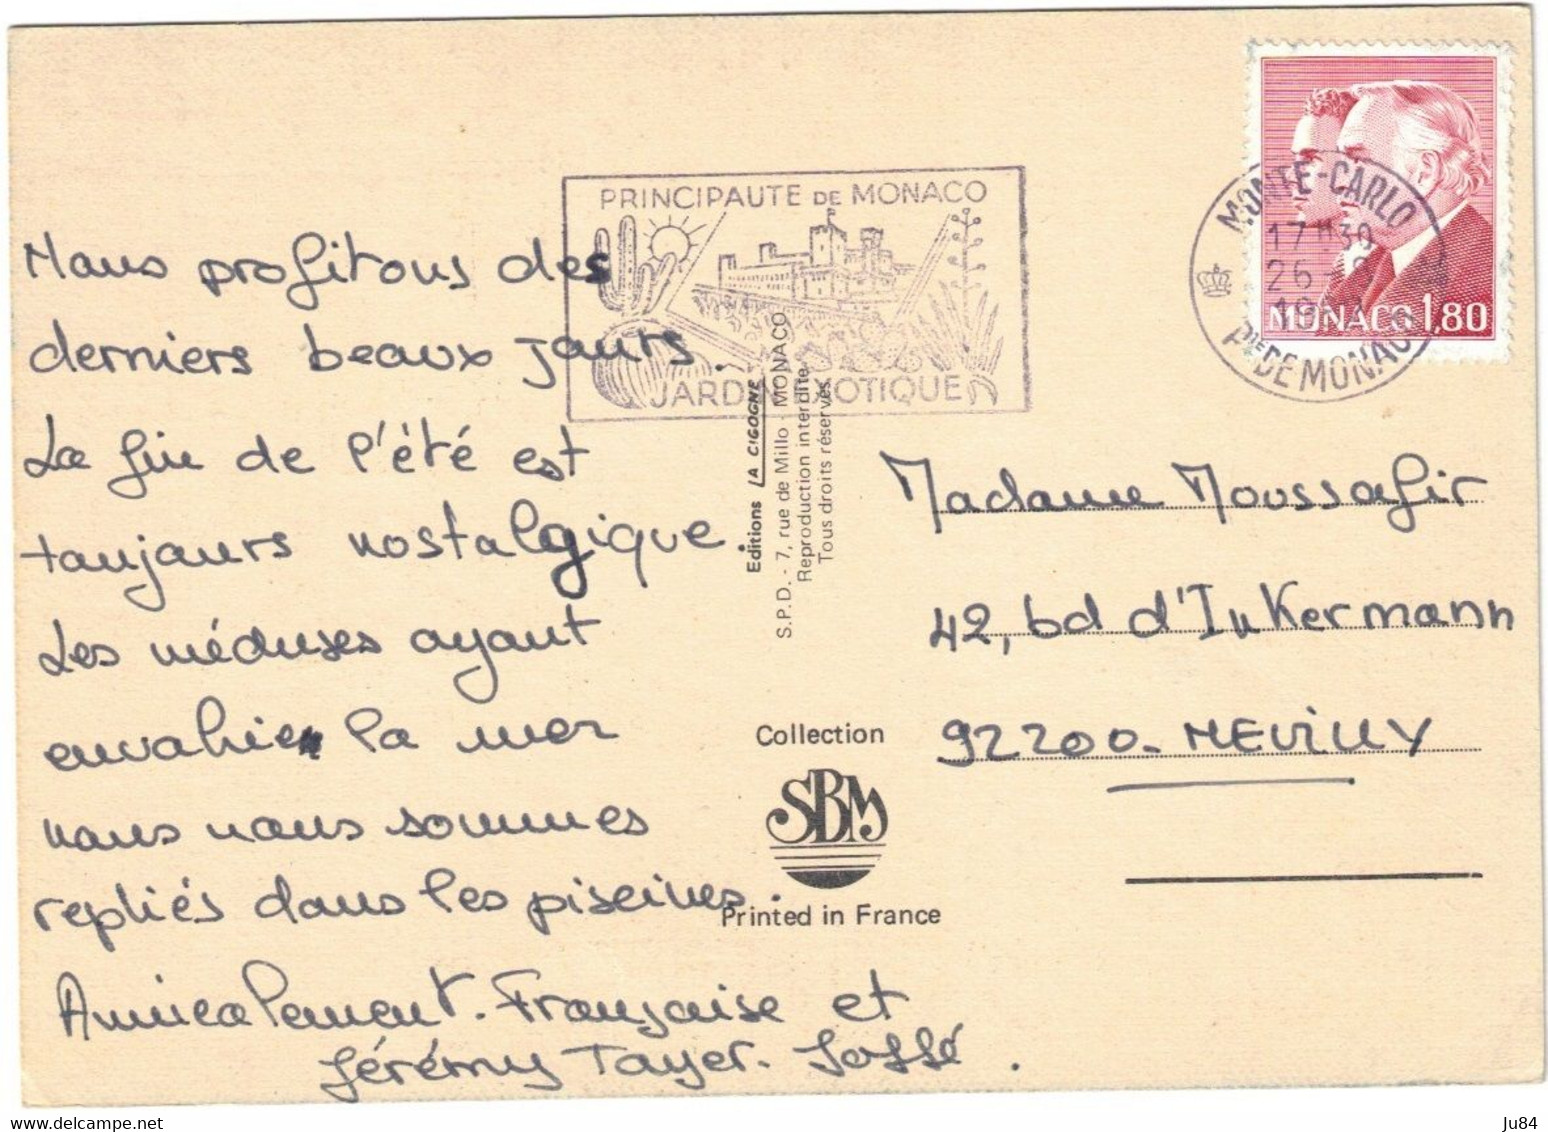 Nous profitons des
derniers beaux jours.
La fin de l'été est
toujours nostalgique.
Les méduses ayant
envahie la mer
nous nous sommes
repliés dans les piscines.
Amicalement. Françoise et
Jérémy Tayer.
PRINCIPAUTE DE MONACO
JARDIN EXOTIQUE
Editions LA CIGOGNE
S.P.D. - 7, rue de Millo - MONACO
Reproduction interdite
Tous droits réservés
Collection
SBM
Printed in France
MONTE-CARLO
17 H 30
26
Pté DE MONACO
MONACO 1,80
Madame Moussafir
42, bd d'Inkermann
92200 - NEUILLY
Ju84